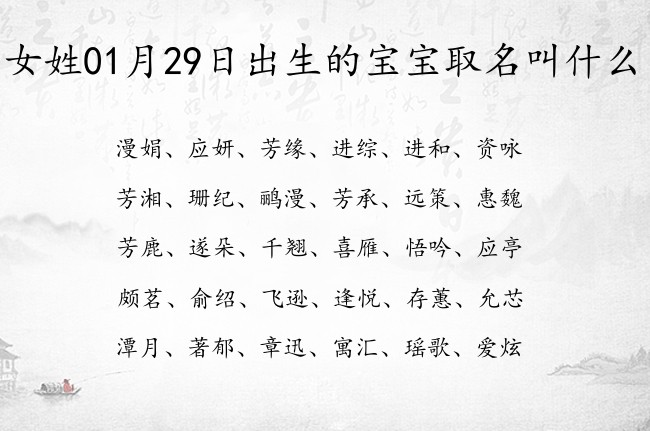 女姓01月29日出生的宝宝取名叫什么
漫娟、应妍、芳缘、进综、进和、资咏
芳湘、珊纪、鹂漫、芳承、远策、惠魏
芳鹿、遂朵、千翘、喜雁、悟吟、应亭
颇茗、俞绍、飞逊、逢悦、存蕙、允芯
潭月、著郁、章迅、寓汇、瑶歌、爱炫